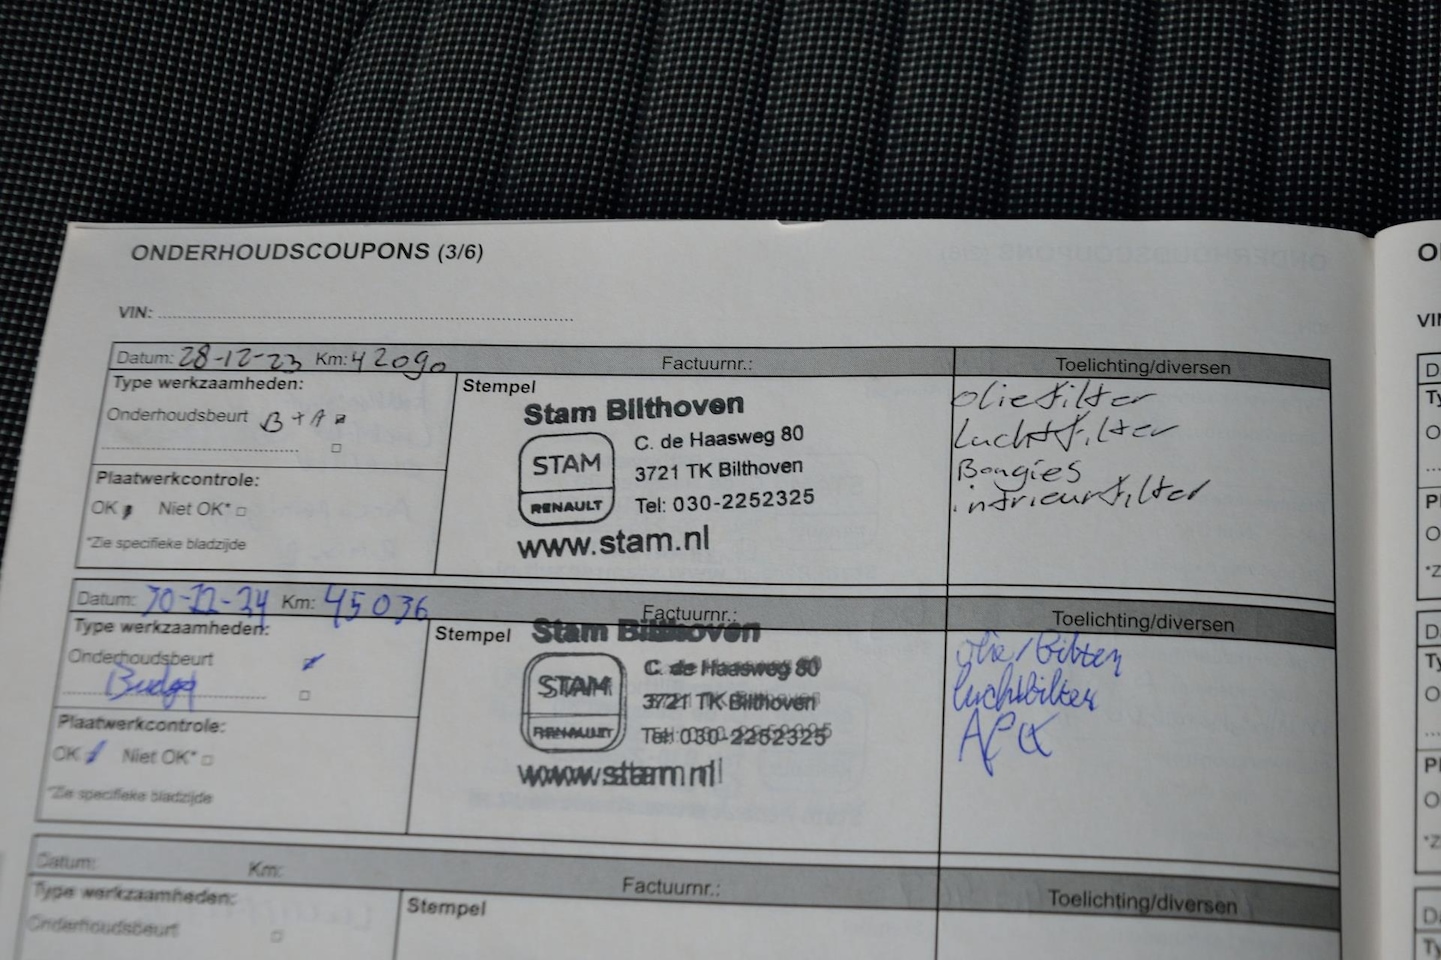 ONDERHOUDSCOUPONS (3/6)
VIN:
Datum: 28-12-23 Km: 42090 Factuurnr.: Toelichting/diversen
Type werkzaamheden:
Onderhoudsbeurt B + A
Plaatwerkcontrole:
OK Niet OK*
*Zie specifieke bladzijde
Stempel
Stam Bilthoven
STAM
RENAULT
C. de Haasweg 80
3721 TK Bilthoven
Tel: 030-2252325
www.stam.nl
oliefilter
luchtfilter
Bougies
intrieurfilter
Datum: Km: 45036 Factuurnr.: Toelichting/diversen
Type werkzaamheden:
Onderhoudsbeurt
Budget
Plaatwerkcontrole:
OK Niet OK*
*Zie specifieke bladzijde
Stempel
Stam Bilthoven
STAM
RENAULT
C. de Haasweg 80
3721 TK Bilthoven
Tel: 030-2252325
www.stam.nl
luchtfilter
APK
Datum: Km: Factuurnr.: Toelichting/diversen
Type werkzaamheden:
Onderhoudsbeurt
Stempel